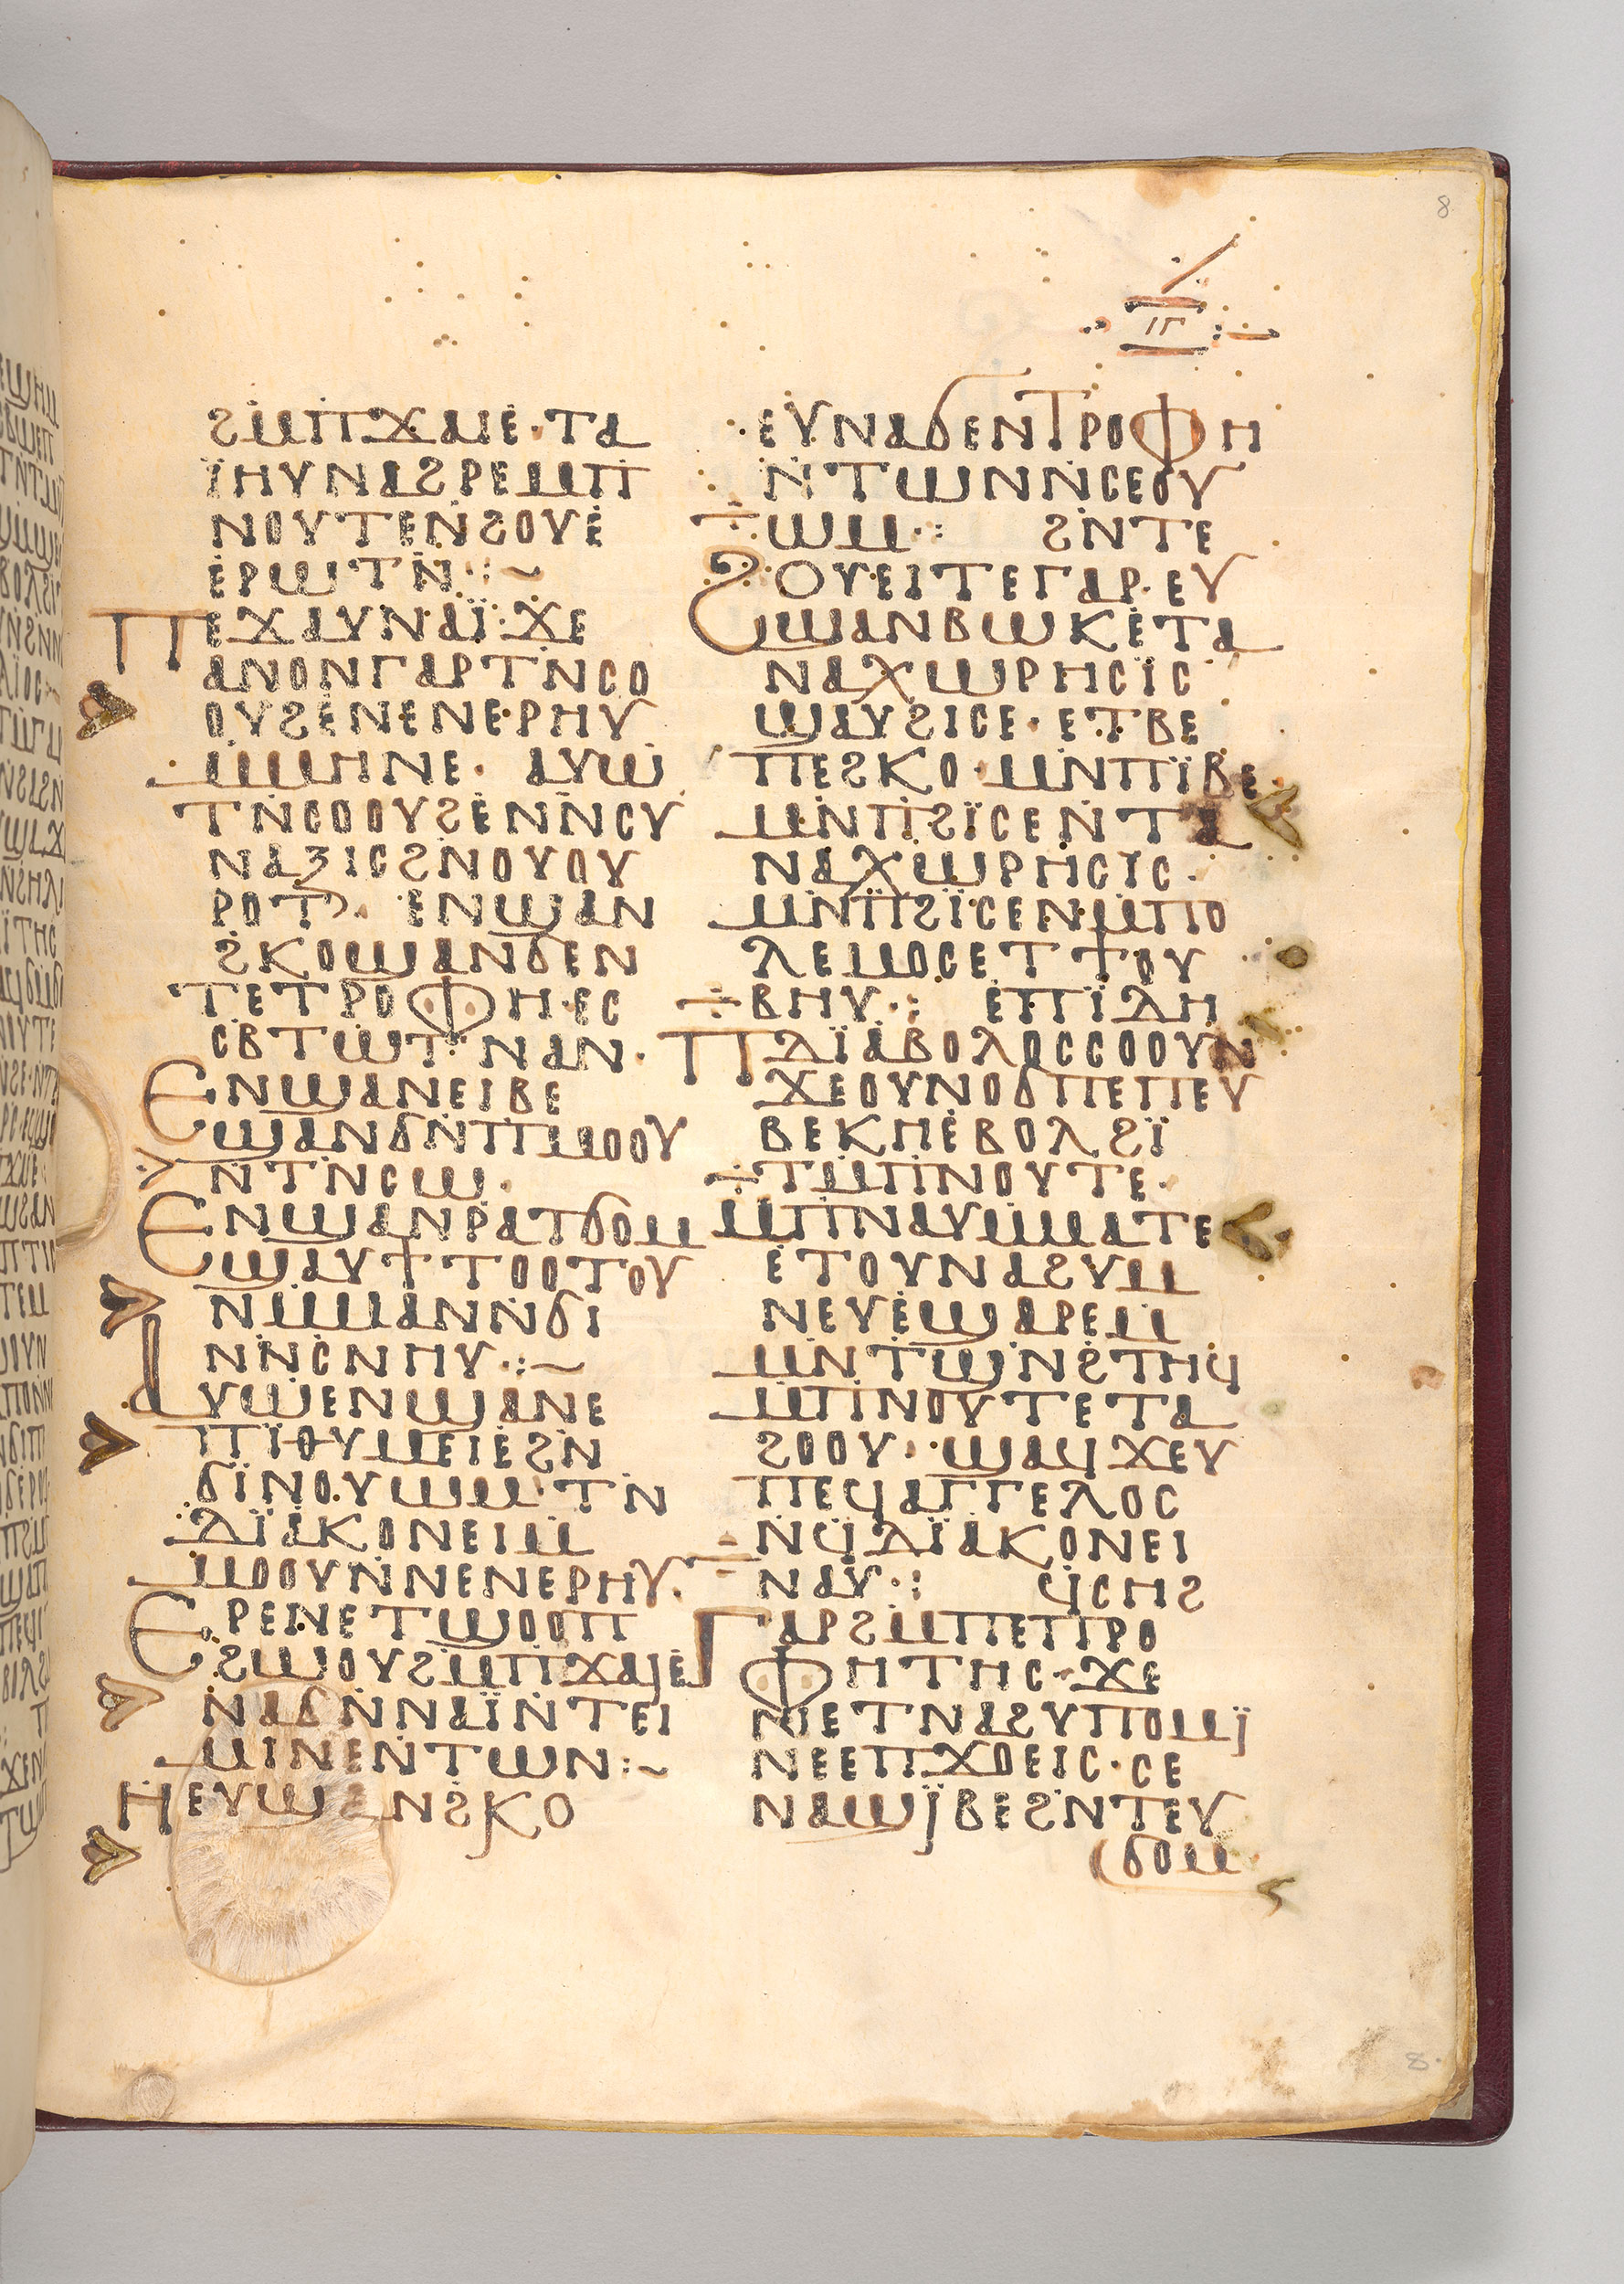 8
ⲓⲅ
ϩⲙⲡϫⲁⲓⲉ·ⲧⲁ
ⲓ̈ⲏⲩⲛⲁϩⲣⲉⲙⲡ
ⲛⲟⲩⲧⲉⲛϩⲟⲩⲉ
ⲉⲣⲱⲧⲛ·:~
ⲡⲉϫⲁⲩⲛⲁⲓ̈·ϫⲉ
ⲁⲛⲟⲛⲅⲁⲣⲧⲛⲥⲟ
ⲟⲩϩⲉⲛⲉⲛⲉ·ⲣⲏⲩ
ⲙⲙⲏⲛⲉ· ⲁⲩⲱ
ⲧⲛⲥⲟⲟⲩϩⲉⲛⲛⲥⲩ
ⲛⲁⲝⲓⲥϩⲛⲟⲩⲟⲩ
ⲣⲟⲧ· ⲉⲛϣⲁⲛ
ϩⲕⲟϣⲁⲛϭⲉⲛ
ⲧⲉⲧⲣⲟⲫⲏ·ⲉⲥ
ⲥⲃⲧⲱⲧ·ⲛⲁⲛ·
ⲉⲛϣⲁⲛⲉⲓⲃⲉ
ϣⲁⲛϭⲛⲡⲙⲟⲟⲩ
ⲛⲧⲛⲥⲱ·
ⲉⲛϣⲁⲛⲣⲁⲧϭⲟⲙ
ϣⲁⲩϯⲧⲟⲟⲧⲟⲩ
ⲛⲙⲙⲁⲛⲛϭⲓ
ⲛⲛⲥⲛⲏⲩ·:~
ⲁⲩⲱⲉⲛϣⲁⲛⲉ
ⲡⲓⲑⲩⲙⲉⲓⲉϩⲛ
ϭⲓⲛⲟⲩⲱⲙ·ⲧⲛ
ⲇⲓ̈ⲁⲕⲟⲛⲉⲓⲙ
ⲙⲟⲟⲩⲛⲛⲉⲛⲉⲣⲏⲩ·
ⲉⲣⲉⲛⲉⲧϣⲟⲟⲡ
ϩⲱⲟⲩϩⲙⲡϫⲁⲓⲉ
ⲛⲁϭⲛⲛⲁⲓ̈ⲛⲧⲉⲓ
ⲙⲓⲛⲉⲛⲧⲱⲛ:~
ⲏⲉⲩϣⲁⲛϩⲕⲟ
ⲉⲩⲛⲁϭⲉⲛⲧⲣⲟⲫⲏ
ⲛⲧⲱⲛⲛⲥⲉⲟⲩ
ⲱⲙ·: ϩⲛⲧⲉ
ϩⲟⲩⲉⲓⲧⲉⲅⲁⲣ·ⲉⲩ
ϣⲁⲛⲃⲱⲕⲉⲧⲁ
ⲛⲁⲭⲱⲣⲏⲥⲓ̈ⲥ
ϣⲁⲩϩⲓⲥⲉ·ⲉⲧⲃⲉ
ⲡⲉϩⲕⲟ·ⲙⲛⲡⲓ̈ⲃⲉ·
ⲙⲛⲡϩⲓ̈ⲥⲉⲛⲧⲁ
ⲛⲁⲭⲱⲣⲏⲥⲓⲥ·
ⲙⲛⲡϩⲓ̈ⲥⲉⲛⲙⲡⲟ
ⲗⲉⲙⲟⲥⲉⲧϯⲟⲩ
ⲃⲏⲩ·: ⲉⲡⲓ̈ⲇⲏ
ⲡⲇⲓ̈ⲁⲃⲟⲗⲟⲥⲥⲟⲟⲩⲛ
ϫⲉⲟⲩⲛⲟϭⲡⲉⲡⲉⲩ
ⲃⲉⲕⲏⲉⲃⲟⲗϩⲓ̈
ⲧⲙⲡⲛⲟⲩⲧⲉ·
ⲙⲡⲛⲁⲩⲙⲙⲁⲧⲉ
ⲉⲧⲟⲩⲛⲁϩⲩⲙ
ⲛⲉⲩⲉϣⲁⲣⲉⲙ
ⲙⲛⲧϣⲛϩⲧⲏϥ
ⲙⲡⲛⲟⲩⲧⲉⲧⲁ
ϩⲟⲟⲩ·ϣⲁϥϫⲉⲩ
ⲡⲉϥⲁⲅⲅⲉⲗⲟⲥ
ⲛϥⲇⲓ̈ⲁⲕⲟⲛⲉⲓ
ⲛⲁⲩ·: ϥⲥⲏϩ
ⲅⲁⲣϩⲙⲡⲉⲡⲣⲟ
ⲫⲏⲧⲏⲥ·ϫⲉ
ⲛⲉⲧⲛⲁϩⲩⲡⲟⲙⲓ̈
ⲛⲉⲉⲡϫⲟⲉⲓⲥ·ⲥⲉ
ⲛⲁϣⲓ̈ⲃⲉϩⲛⲧⲉⲩ
ϭⲟⲙ
8